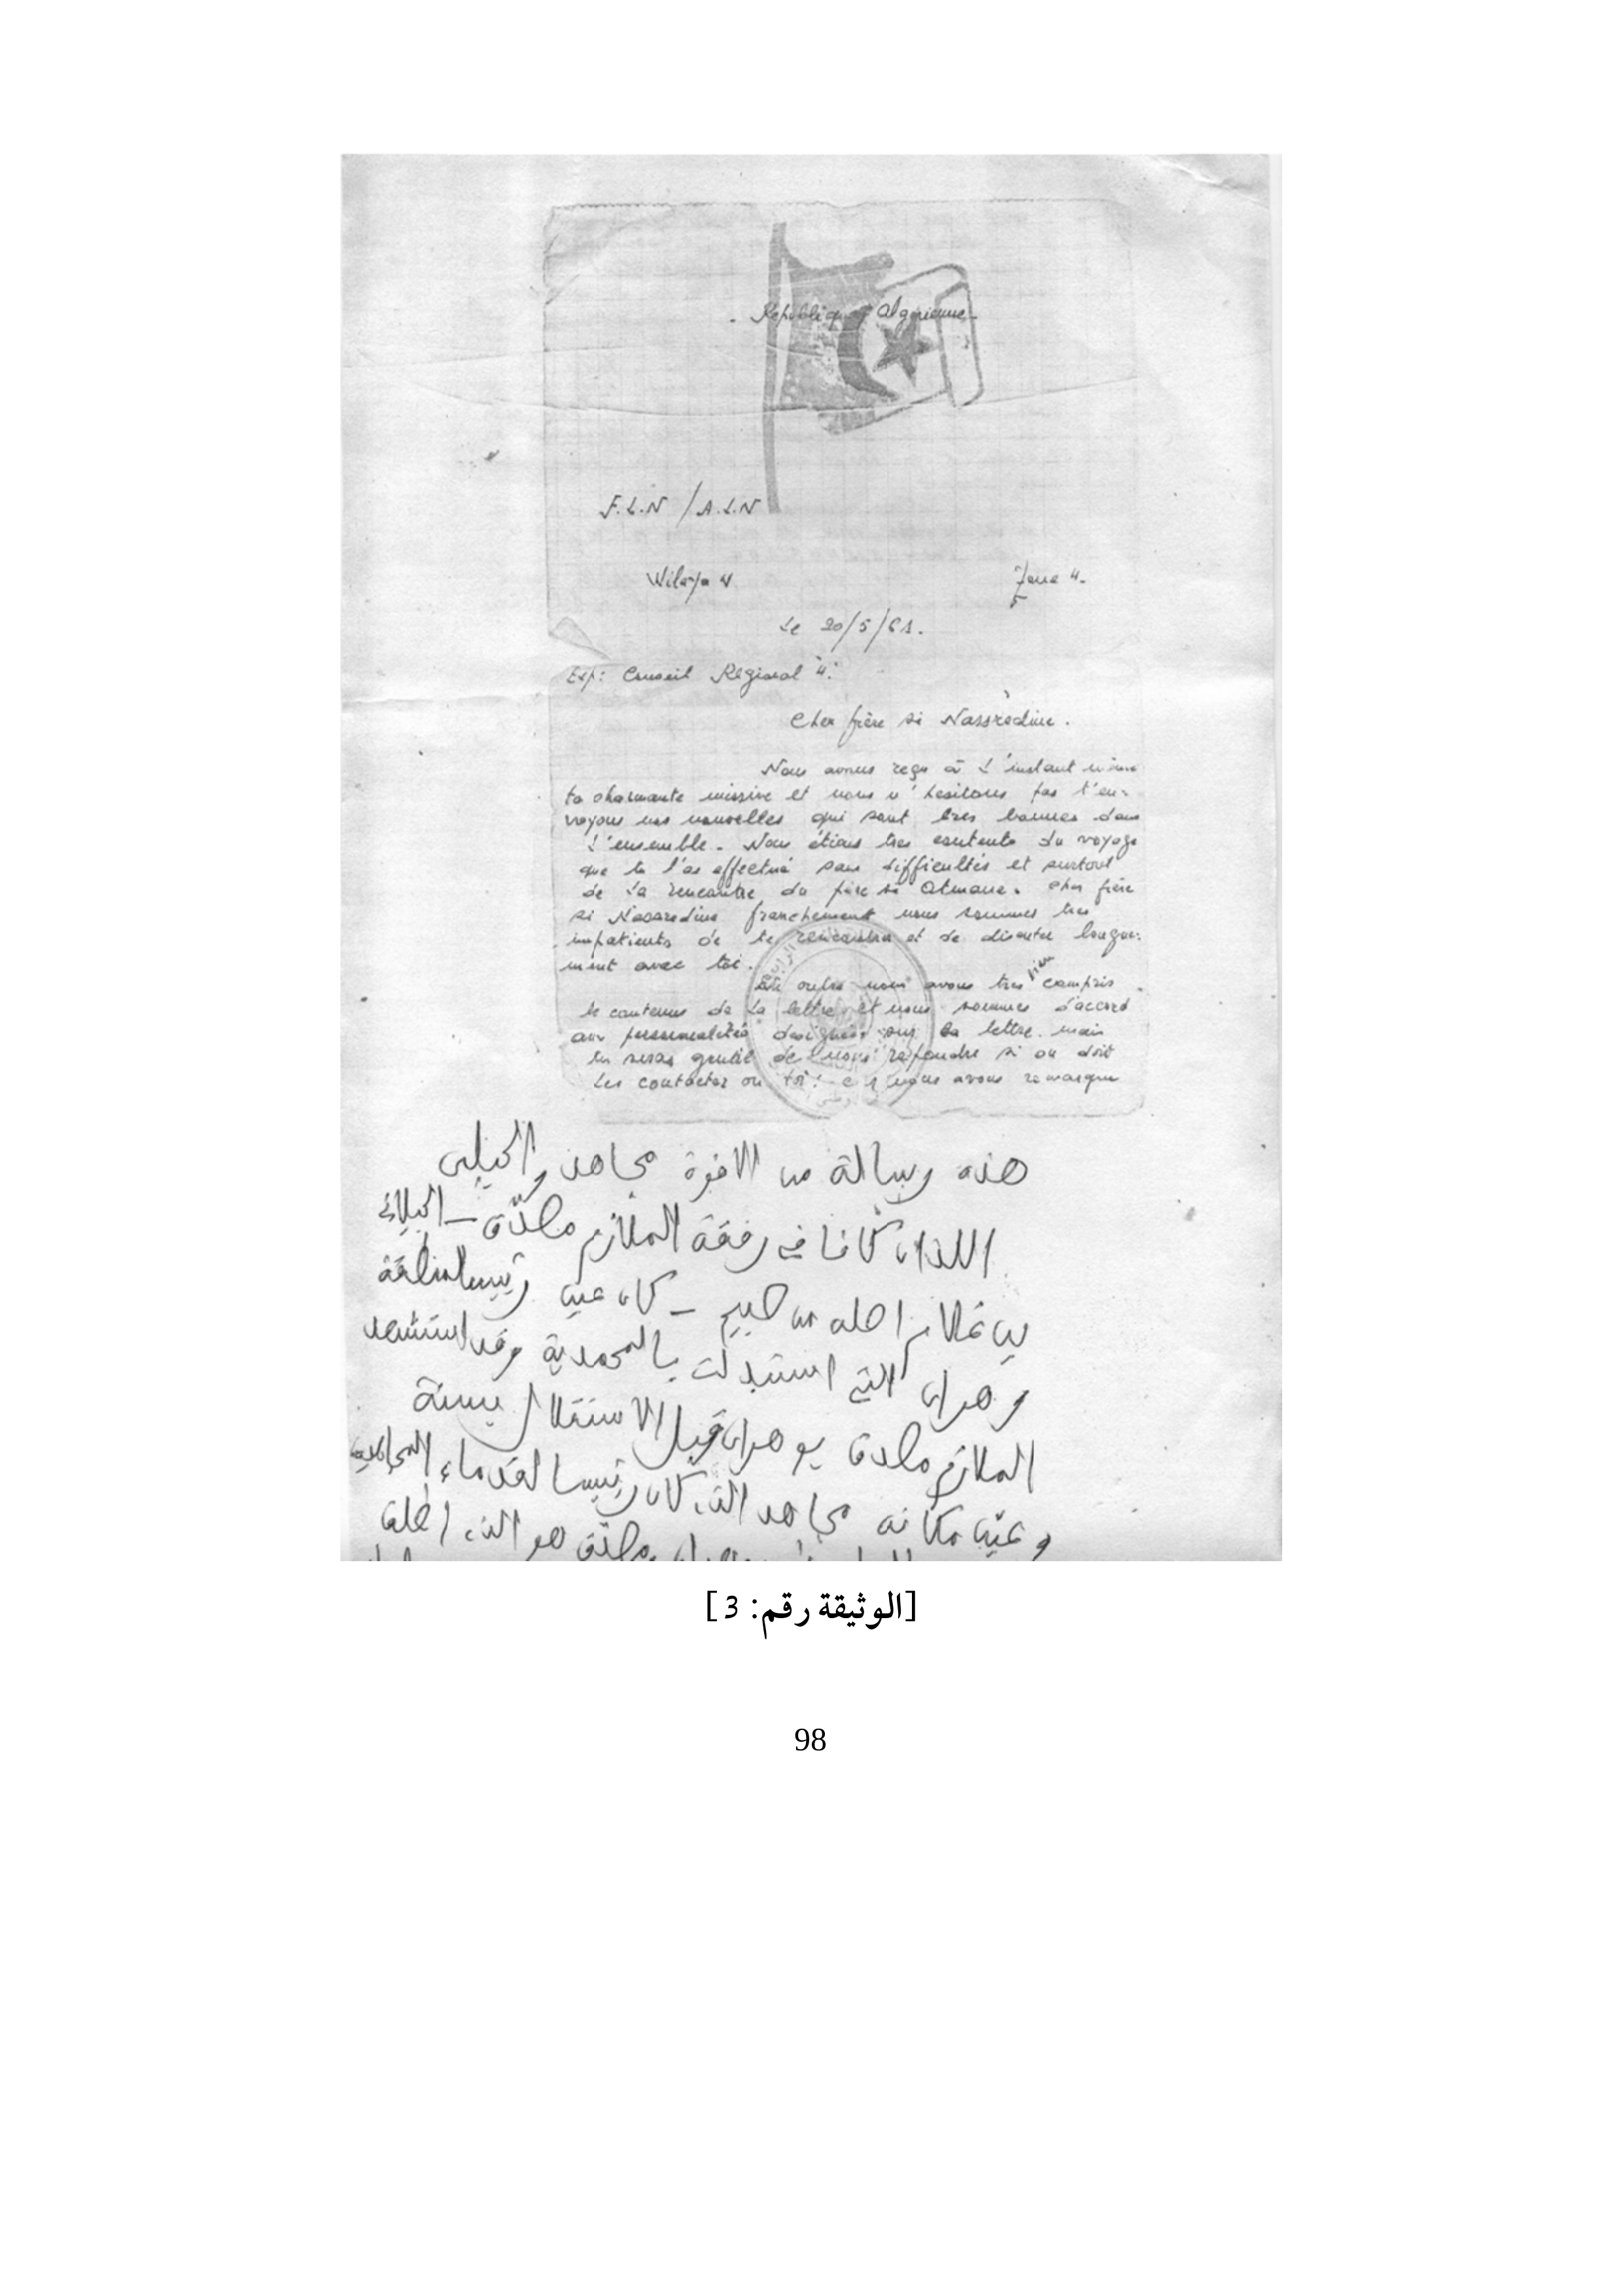 - République Algérienne -
F.L.N / A.L.N
Wilaya 4
Zone 4.
5
Le 20/5/61.
Exp: Conseil Régional "4".
Cher frère si Nassrèdine.
Nous avons reçu à l'instant même
ta charmante missive et nous n'hesitons pas t'en-
voyons nos nouvelles qui sont très bonnes dans
l'ensemble. Nous étions très contents du voyage
que tu l'as effectué sans difficultés et surtout
de la rencontre du frère si Otmane. Cher frère
si Nassredine franchement nous sommes tres
impatients de te rencontrer et de discuter longue-
ment avec toi.
En outre nous avons tres bien compris
le contenus de la lettre et nous sommes d'accord
aux personnalités designées sur la lettre. mais
tu seras gentil de nous repondre si on doit
les contacter ou toi: car nous avons remarque
هذه رسالة من الاخوة مجاهد والجيلالي
اللذان كانا في رفقة الملازم صادق – الجيلالي
بن غلام اصله من – كان عين رئيسا لمنطقة
وهران التي استبدلت بالمحمدية وقد استشهد
الملازم صادق بوهران قبل الاستقلال بسنة
وعين مكانه مجاهد الذي كان رئيسا لقدماء المجاهدين
صادق هو الذي
[الوثيقة رقم: 3 ]
98